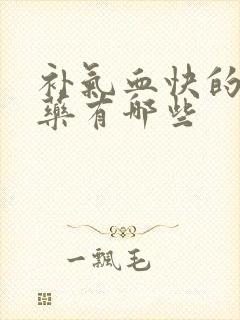 补氣血快的
藥有哪些
一飄毛